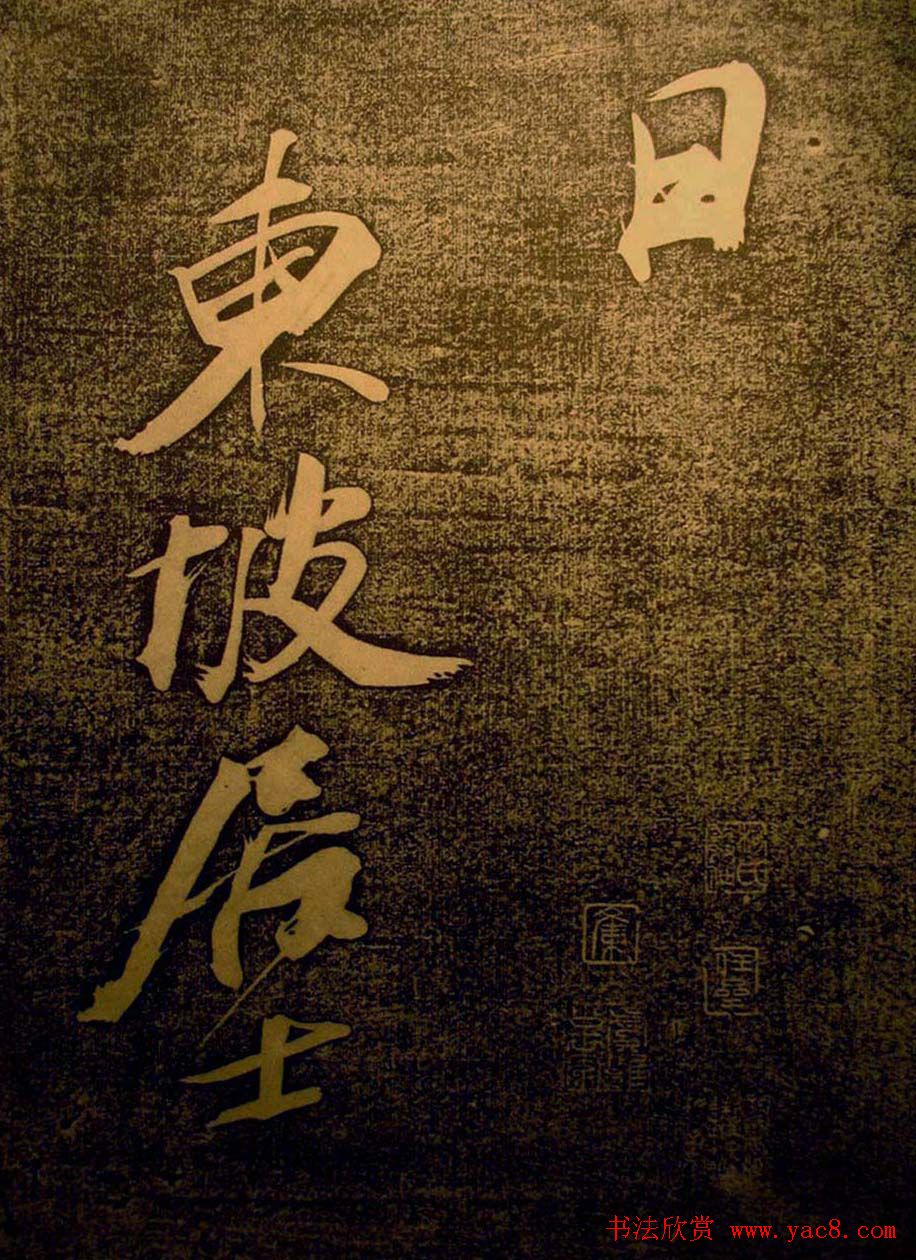 日
東坡居士
书法欣赏 www.yac8.com